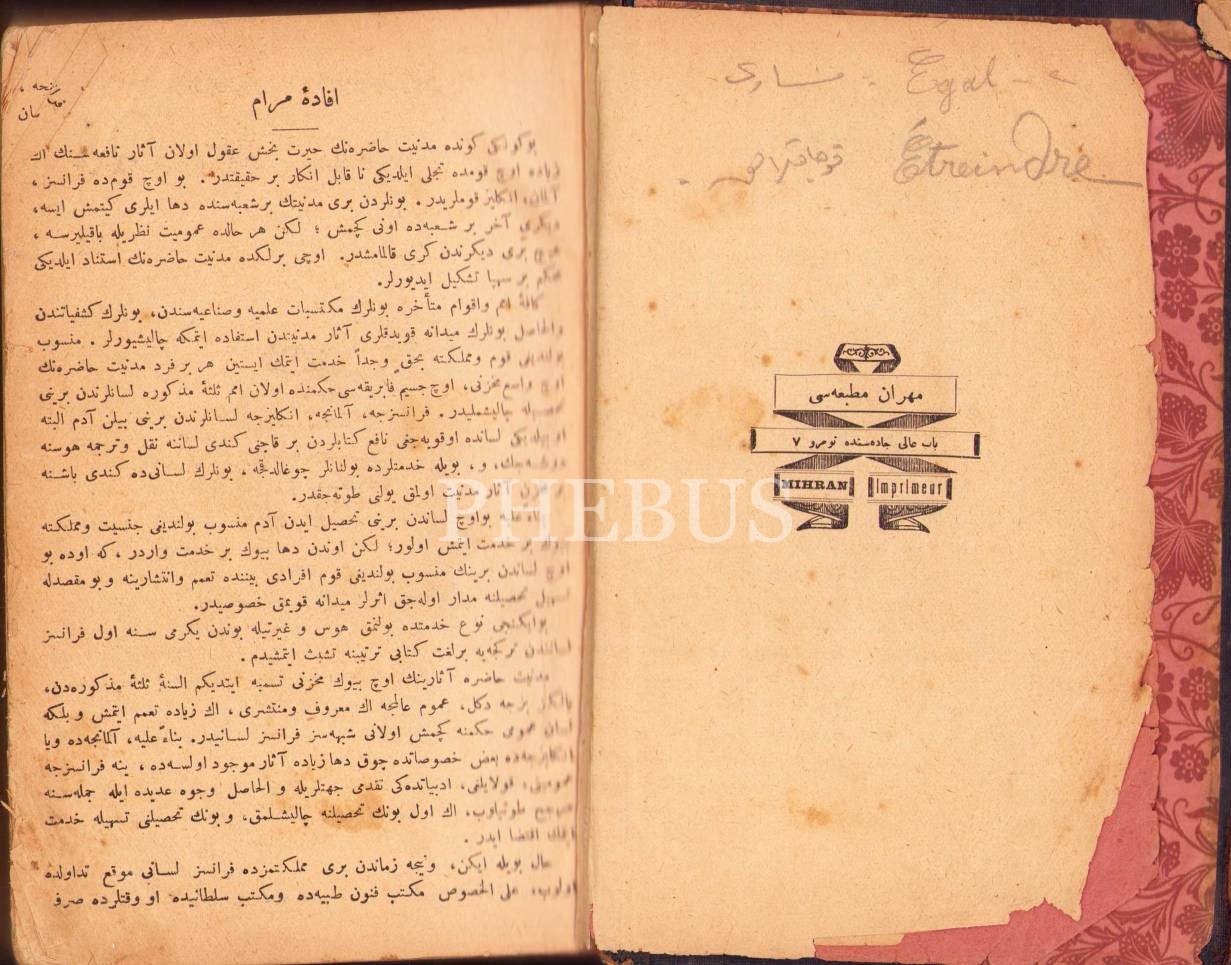 Egal - e مساوی
Étreindre قوجاقلامق
مهران مطبعه‌سی
باب عالی جاده‌سنده نومرو ۷
MIHRAN Imprimeur
افادهٔ مرام
كونده مدنیت حاضره‌نك حیرت بخش عقول اولان آثار نافعه‌سنك اك
زیاده اوچ قومده تجلی ایلدیكی نا قابل انكار بر حقیقتدر . بو اوچ قوم‌ده فرانسز ،
آلمان، انكلیز قوملریدر . بونلردن بری مدنیتك بر شعبه‌سنده دها ایلری كیتمش ایسه،
دیكری آخر بر شعبه‌ده اونی كچمش ؛ لكن هر حالده عمومیت نظریله باقیلیرسه ،
هیچ بری دیكرندن كری قالمامشدر. اوچی برلكده مدنیت حاضره‌نك استناد ایلدیكی
محكم بر سهپا تشكیل ایدیورلر.
كافهٔ امم واقوام متأخره بونلرك مكتسبات علمیه وصناعیه‌سندن، بونلرك كشفیاتندن
والحاصل بونلرك میدانه قویدقلری آثار مدنیتدن استفاده ایتمكه چالیشیورلر . منسوب
بولندیغی قوم ومملكته بحق وجداً خدمت ایتمك ایستین هر بر فرد مدنیت حاضره‌نك
اوچ واسع مخزنی، اوچ جسیم فابریقه‌سی حكمنده اولان امم ثلثهٔ مذكوره لسانلرندن برینی
تحصیله چالیشملیدر. فرانسزجه، آلمانجه، انكلیزجه لسانلرندن برینی بیلن آدم البته
او بیلدیكی لسانده اوقویه‌جغی نافع كتابلردن بر قاچنی كندی لساننه نقل وترجمه هوسنه
دوشه‌جك، و، بویله خدمتلرده بولنانلر چوغالدقجه ، بونلرك لسانی‌ده كندی باشنه
مخزن آثار مدنیت اولمق یولنی طوته‌جقدر.
بناء علیه بو اوچ لساندن برینی تحصیل ایدن آدم منسوب بولندیغی جنسیت ومملكته
بیوك بر خدمت ایتمش اولور؛ لكن اوندن دها بیوك بر خدمت واردر ، كه اوده بو
اوچ لساندن برینك منسوب بولندیغی قوم افرادی بیننده تعمم وانتشارینه و بو مقصدله
تسهیل تحصیلنه مدار اوله‌جق اثرلر میدانه قویمق خصوصیدر.
بو ایكنجی نوع خدمتده بولنمق هوس و غیرتیله بوندن یكرمی سنه اول فرانسز
لسانندن تركجه‌یه بر لغت كتابی ترتیبنه تشبث ایتمشیدم .
مدنیت حاضره آثارینك اوچ بیوك مخزنی تسمیه ایتدیكم السنهٔ ثلثهٔ مذكوره‌دن،
یالكز بزجه دكل، عموم عالمجه اك معروف ومنتشری ، اك زیاده تعمم ایتمش و بلكه
لسان عمومی حكمنه كچمش اولانی شبهه‌سز فرانسز لسانیدر. بناءً علیه، آلمانجه‌ده ویا
انكلیزجه‌ده بعض خصوصاتده چوق دها زیاده آثار موجود اولسه‌ده ، ینه فرانسزجه
عمومیتی، قولایلغی، ادبیاتده‌كی تقدمی جهتلریله و الحاصل وجوه عدیده ایله جمله‌سنه
ترجیح طوتیلوب، اك اول بونك تحصیلنه چالیشلمق، و بونك تحصیلنی تسهیله خدمت
ایتمك اقتضا ایدر .
حال بویله ایكن، ونیجه زماندن بری مملكتمزده فرانسز لسانی موقع تداولده
اولوب، علی الخصوص مكتب فنون طبیه‌ده ومكتب سلطانیده او وقتلرده صرف
PHEBUS